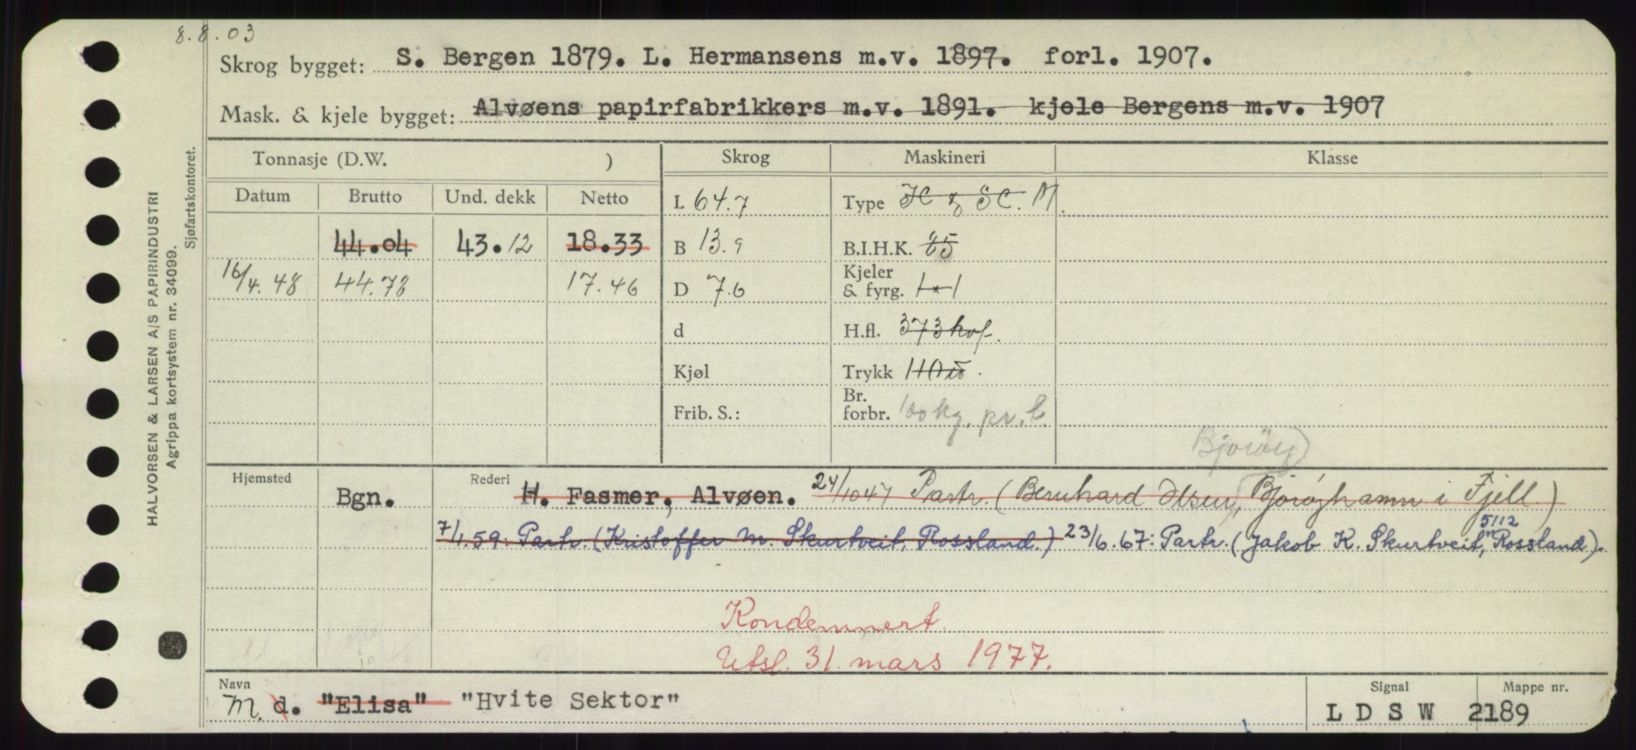 8.8.03
Skrog bygget: S. Bergen 1879. L. Hermansens m.v. 1897. forl. 1907.
Mask. & kjele bygget: Alvøens papirfabrikkers m.v. 1891. kjele Bergens m.v. 1907
Tonnasje (D.W. ) Skrog Maskineri Klasse
Datum Brutto Und. dekk Netto
L 64.7 Type M.
44.04 43.12 18.33 B 13.9 B.I.H.K. 85
16/4.48 44.73 17.46 D 7.6 Kjeler & fyrg. 1 * 1
d H.fl. 373 kvf.
Kjøl Trykk 110
Frib. S.: Br. forbr. 100 kg. pr. t
Bjorøy)
Hjemsted Rederi
Bgn. H. Fasmer, Alvøen. 24/10 47 Partr. (Bernhard Olsen, Bjorøyhamn i Fjell)
7/1.59: Partr. (Kristoffer M. Skurtveit, Rossland.) 23/6.67: Partr. (Jakob K. Skurtveit, 5112 Rossland).
Kondemnert.
Utsl. 31. mars 1977.
Navn Signal Mappe nr.
M. d. "Elisa" "Hvite Sektor" L D S W 2189
HALVORSEN & LARSEN A/S PAPIRINDUSTRI
Agrippa kortsystem nr. 34099.
Sjøfartskontoret.